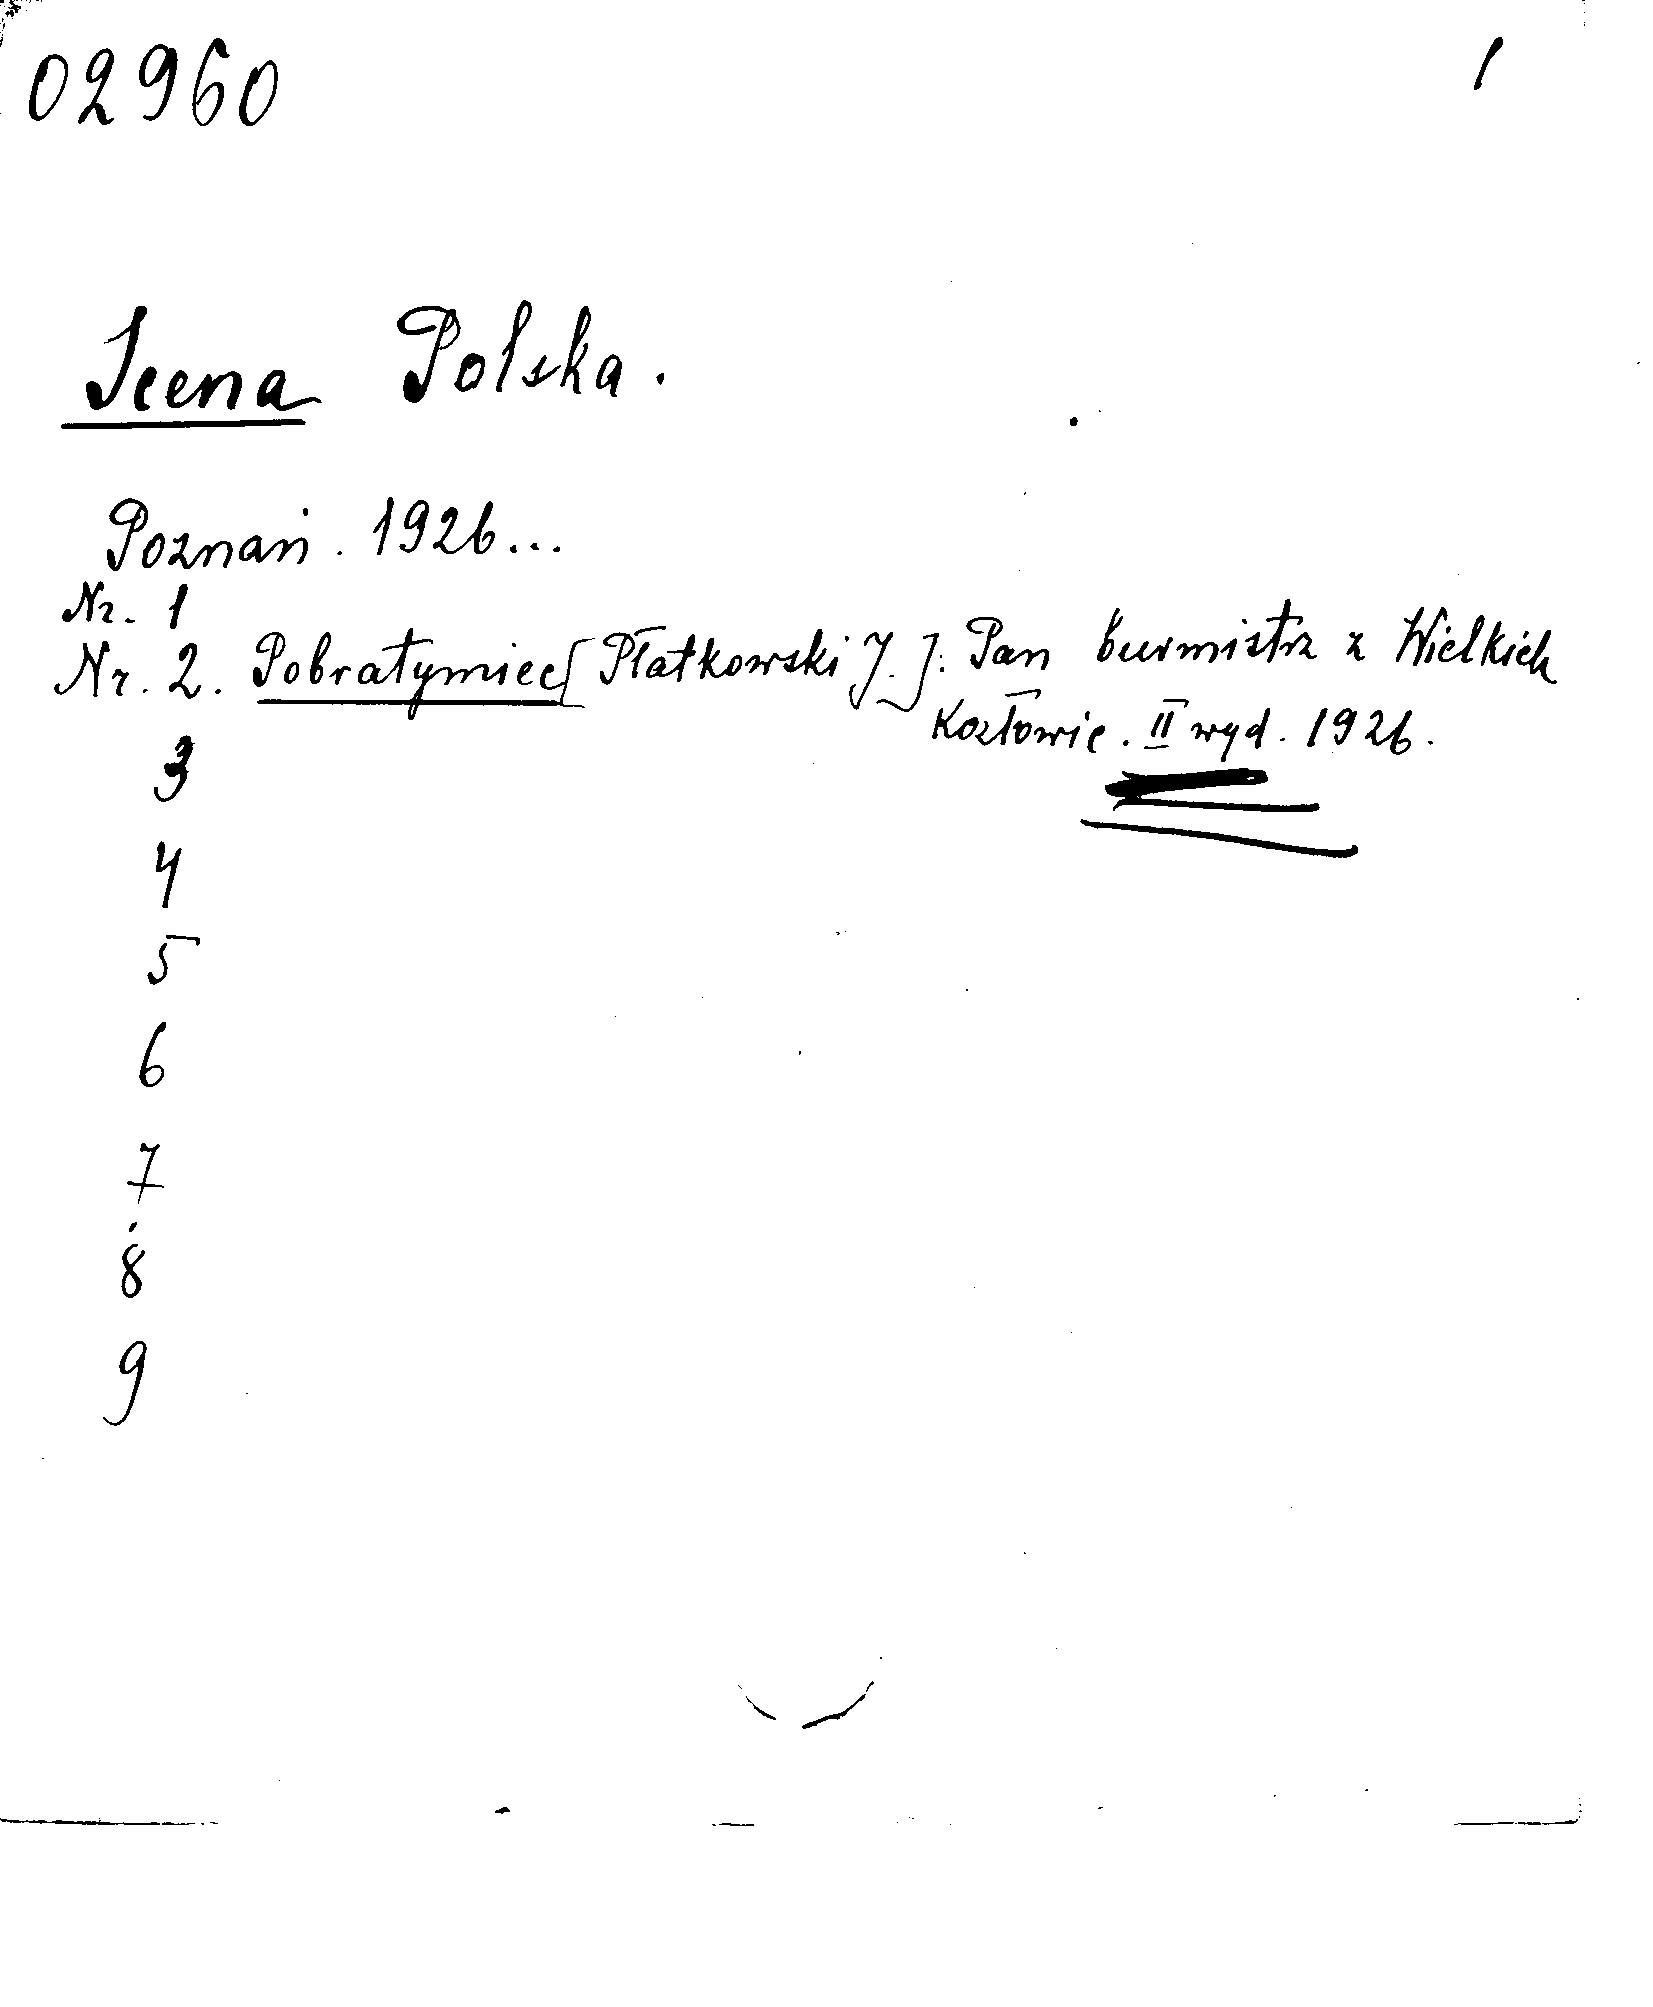 02960 1
Scena Polska.
Poznań. 1926...
Nr. 1
Nr. 2. Pobratymiec [Płatkowski J.]: Pan burmistrz z Wielkich
Kozłowic. II wyd. 1926.
3
4
5
6
7
8
9